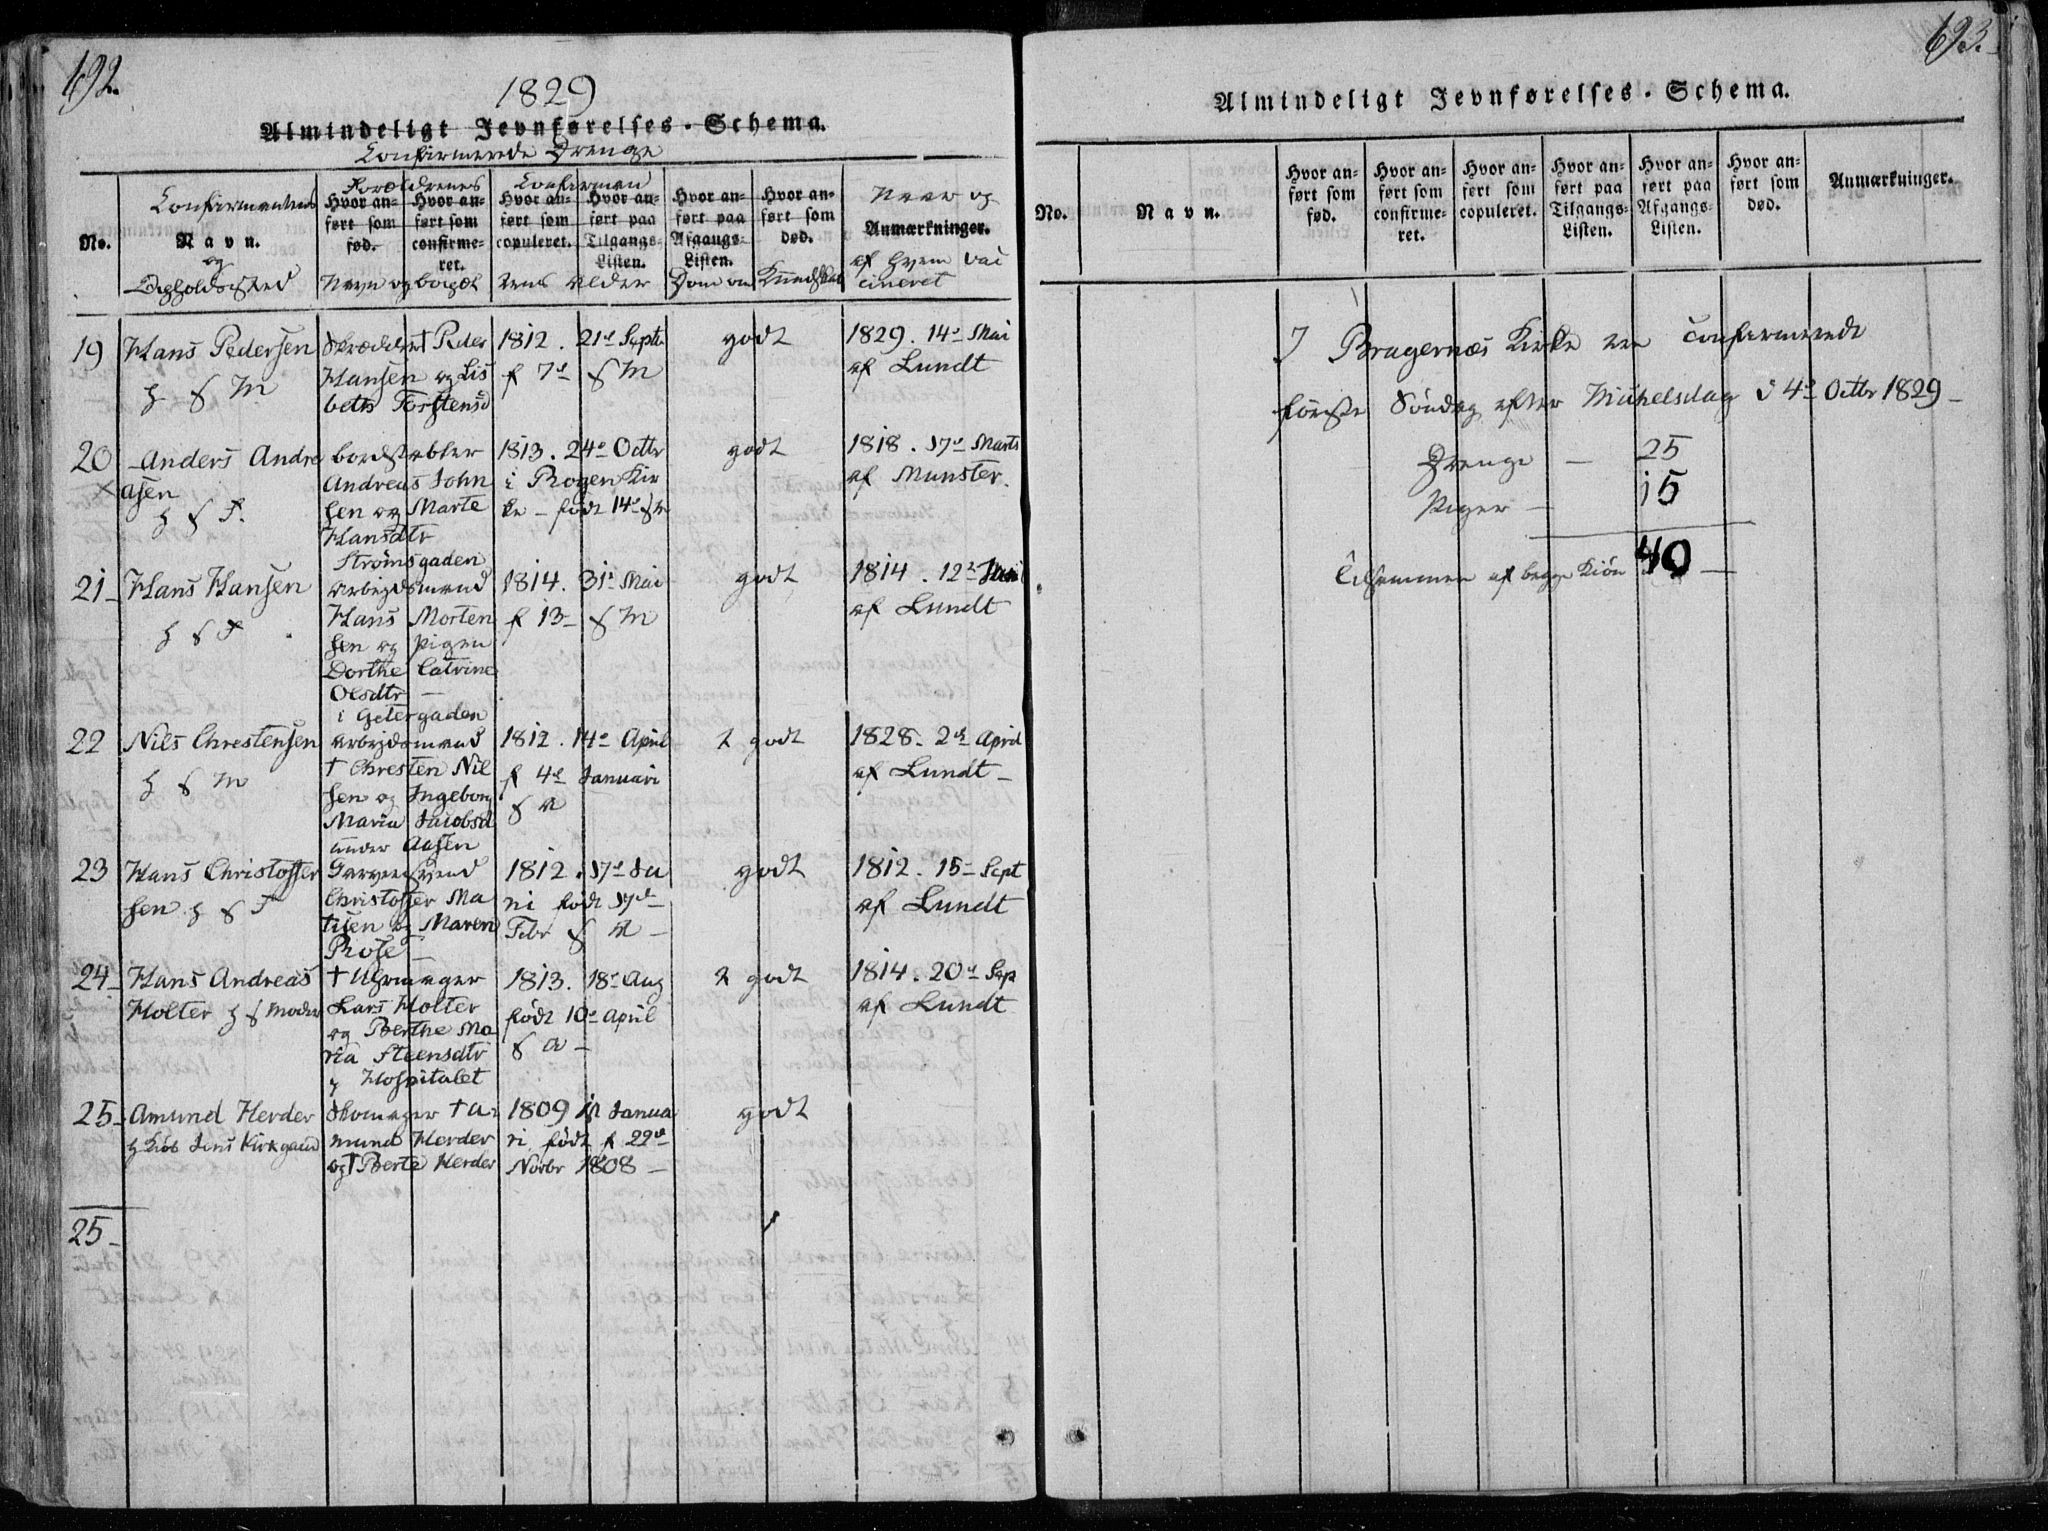 692.
1829
Almindeligt Jevnførelses-Schema.
Confirmerede Drenge
No.
Confirmantens
Navn.
og
Opholdssted
Forældrenes
Hvor anført som fød.
Hvor anført som confirmeret.
Navn og
Confirman
Hvor anført som copuleret.
Hvor anført paa Tilgangs-Listen.
tens Alder
Hvor anført paa Afgangs-Listen.
Hvor anført som død.
Dom om Kundskab
Naar og
Anmærkninger.
af hvem vac
cineret
19 Hans Pedersen
h S M
Skrædder † Peder
Hansen og Lis
beth Torstensd
1812. 21de Septr
f 7de S M
godt
1829. 14de Mai
af Lundt
20 Anders Andre
asen
h S F.
bordstabler
Andreas John
sen og Marte
Hansdtr
Strømsgaden
1813. 24de Octbr
i Rogen Kir
ke - født 14de
godt
1818. 17de Marts
af Munster.
21 Hans Hansen
h S F
Arbejdsmand
Hans Morten
sen og Pigen
Dorthe Catrine
Olsdtr
i Getergaden
1814. 31te Mai
f 13 S M
godt
1814. 12te Juni
af Lundt
22 Nils Chrestensen
h S M
Arbejdsmand
† Chresten Nil
sen og Ingeborg
Maria Jacobsd
under Aasen
1812. 14de April
f 4de Januari
S A
godt
1828. 2den April
af Lundt
23 Hans Christoffer
sen h S F
Garversvend
Christoffer Ma
tisen og Maren
Rose
1812. 17de Ju
ni født 17de
Febr S A
godt
1812. 15 Sept
af Lundt
24 Hans Andreas
Holter h S Moder
† Uhrmager
Lars Holter
og Berthe Ma
ria Steensdtr
Hospitalet
1813. 18de Aug
født 10de April
S A
godt
1814. 20de Sep
af Lundt
25 Amund Herder
h hos Jens Kirkgaard
Skomager † A
mund Herder
og † Berte Herder
1809 Janua
ri født f 22de
Novbr 1808
godt
25
693.
Almindeligt Jevnførelses-Schema.
No.
Navn.
Hvor anført som fød.
Hvor anført som confirmeret.
Hvor anført som copuleret.
Hvor anført paa Tilgangs-Listen.
Hvor anført paa Afgangs-Listen.
Hvor anført som død.
Anmærkninger.
I Bragernæs Kirke ere confirmerede
første Søndag efter Michelsdag d 4de Octbr 1829
Drenge - 25
Piger - 15
Tilsammen af begge Kiön 40